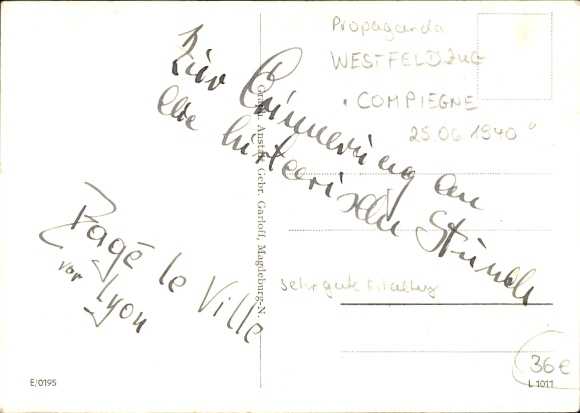 Propaganda
WESTFELDZUG
"COMPIEGNE
25.06 1940"
Zur Erinnerung an
die historischen Stunde
Bagé le Ville
vor Lyon
Graph. Anstalt Gebr. Garloff, Magdeburg-N.
sehr gute Erhaltung
36€
E/0195
L 1011